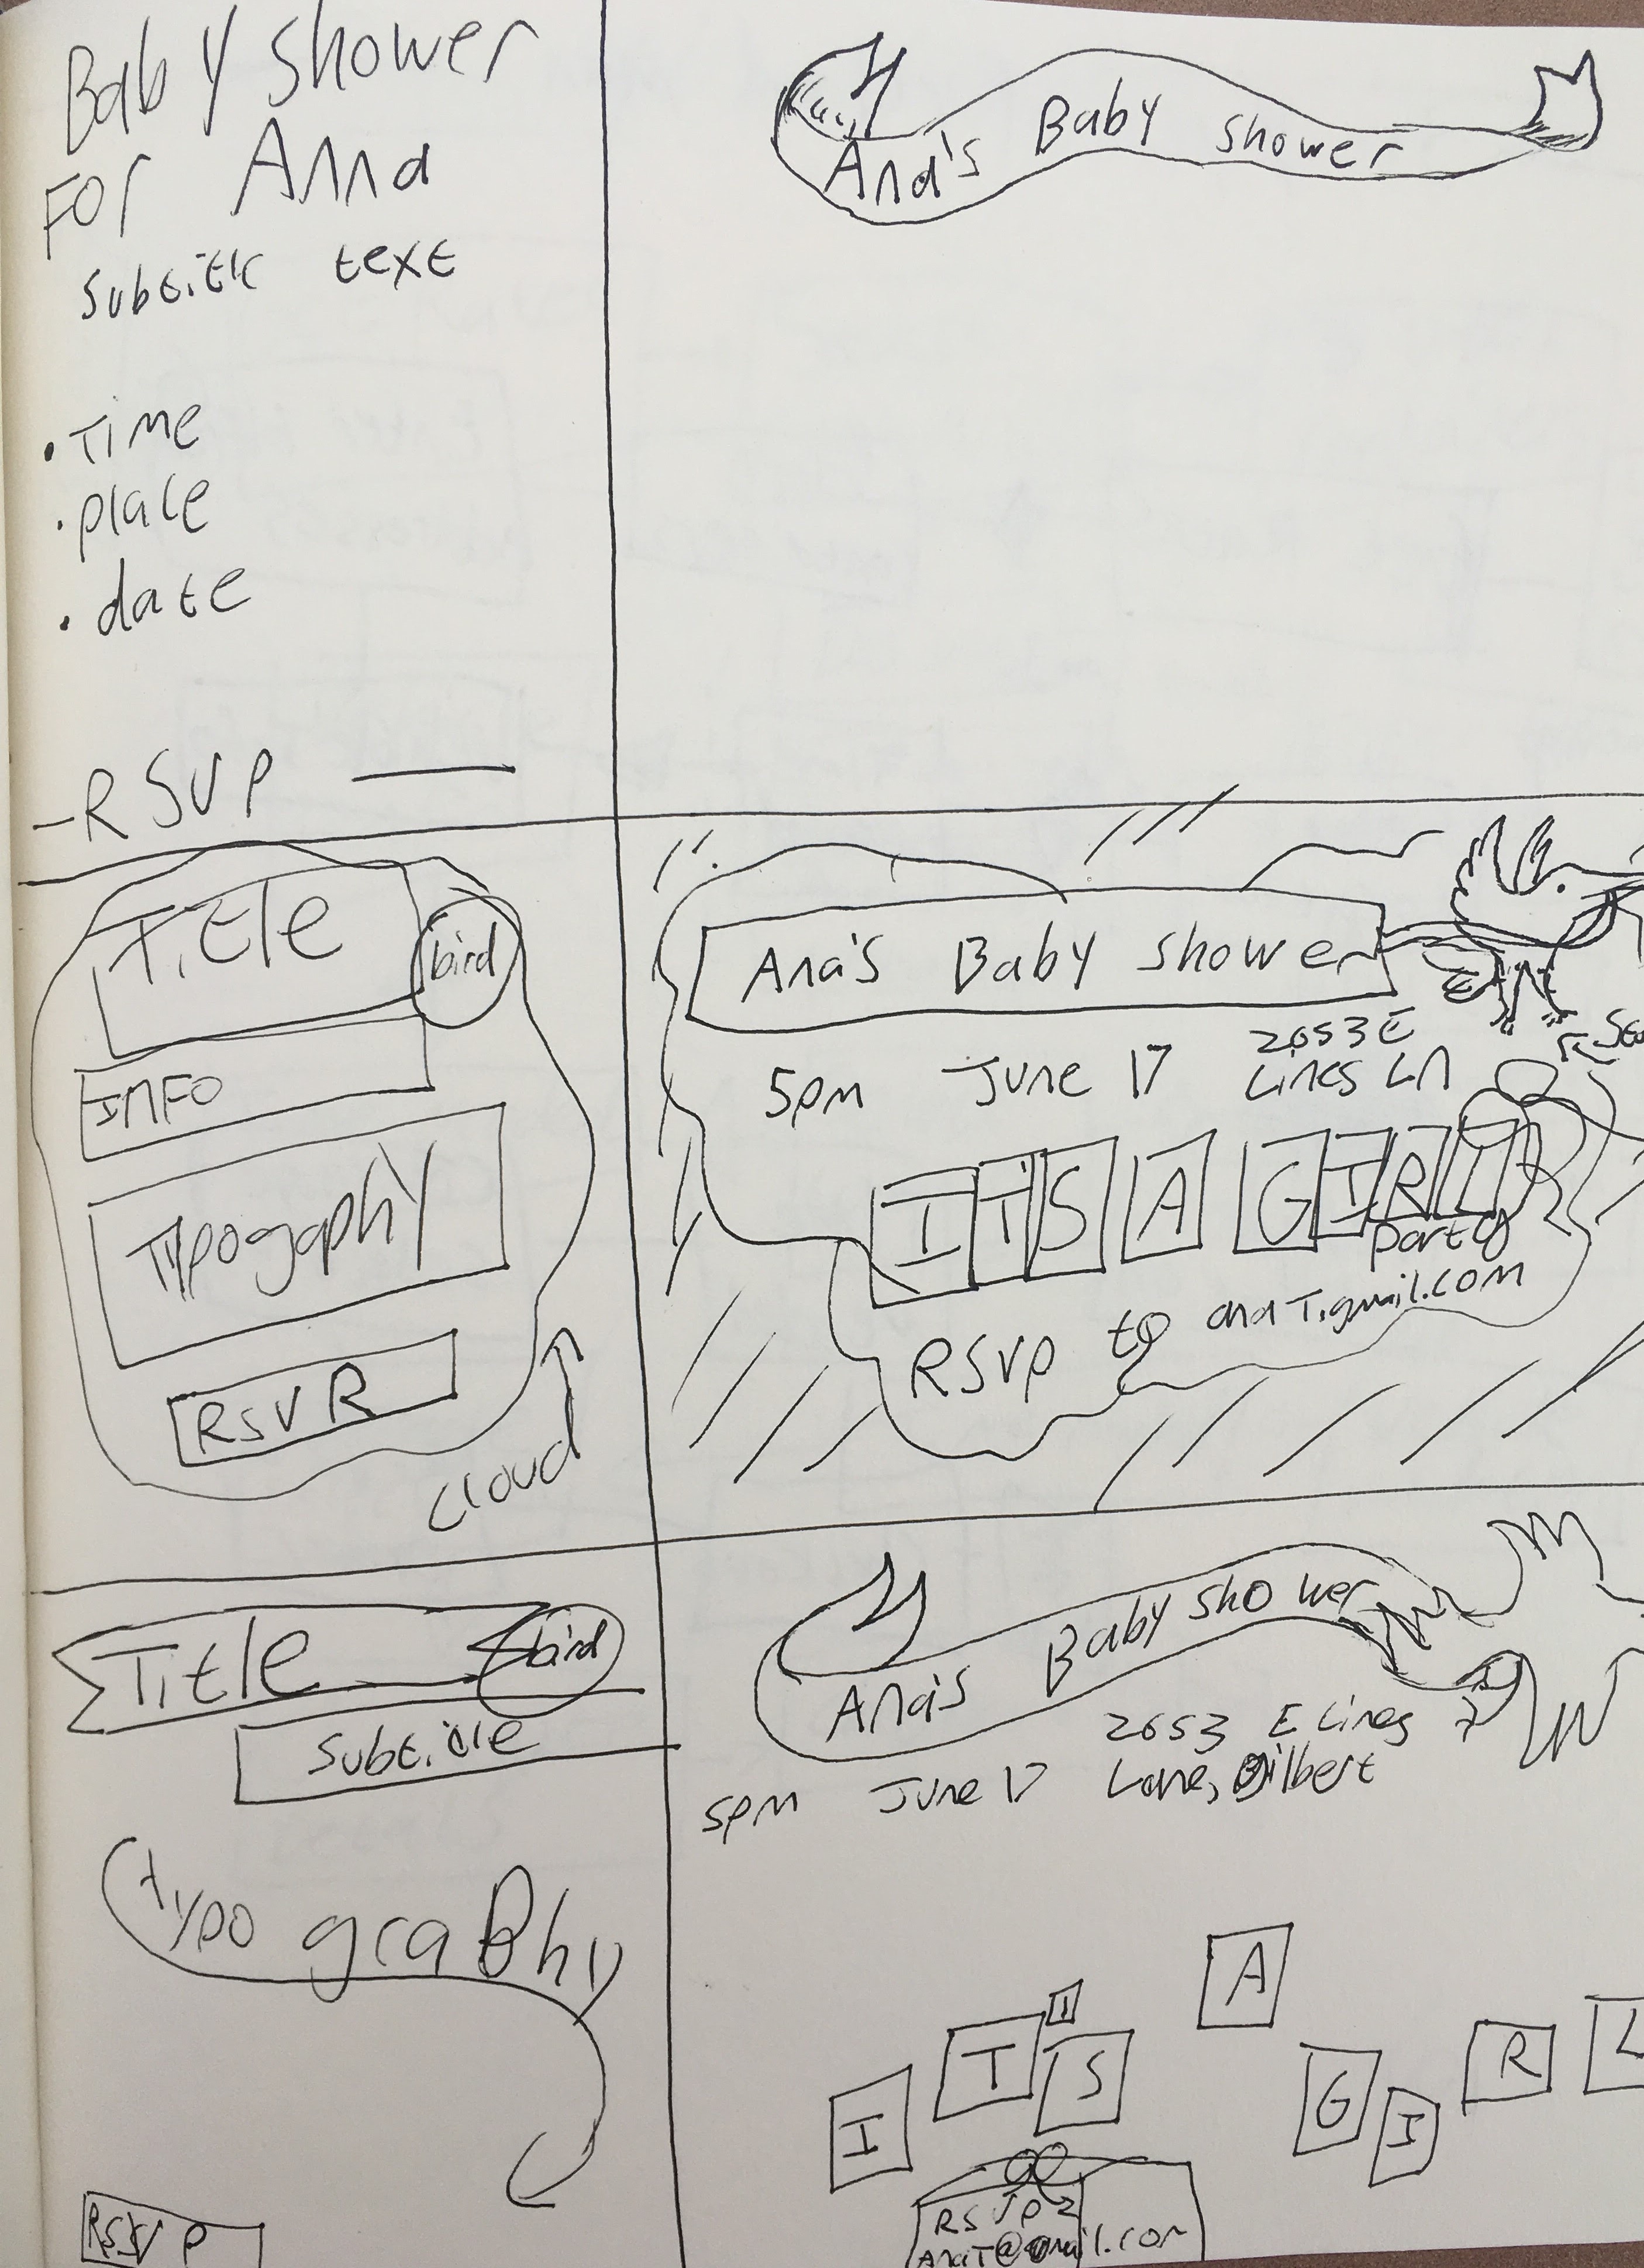 Baby shower
For Anna
subtitle text
• Time
• place
• date
- RSVP
Ana's Baby shower
Title
bird
INFO
Typogaphy
RSVR
cloud
Ana's Baby shower
5pm June 17 2653 E
Lines Ln
ITS A GIRL
party
RSVP to anaT.gmail.com
Title
bird
Subtitle
typography
RSVP
Ana's Baby shower
5pm June 17 2653 E Lines
Lane, Gilbert
IT'S A GIRL
RSVP 2
AnaT@gmail.com